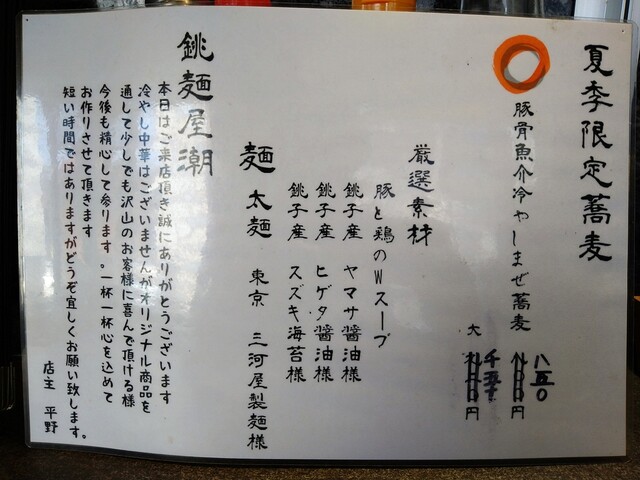 夏季限定蕎麦
豚骨魚介冷やしまぜ蕎麦
八五〇
円
大
千五十
円
厳選素材
豚と鶏のWスープ
銚子産 ヤマサ醤油様
銚子産 ヒゲタ醤油様
銚子産 スズキ海苔様
麺 太麺 東京 三河屋製麺様
銚麺屋潮
本日はご来店頂き誠にありがとうございます
冷やし中華はございませんがオリジナル商品を
通して少しでも沢山のお客様に喜んで頂ける様
今後も精心して参ります。一杯一杯心を込めて
お作りさせて頂きます
短い時間ではありますがどうぞ宜しくお願い致します。
店主 平野